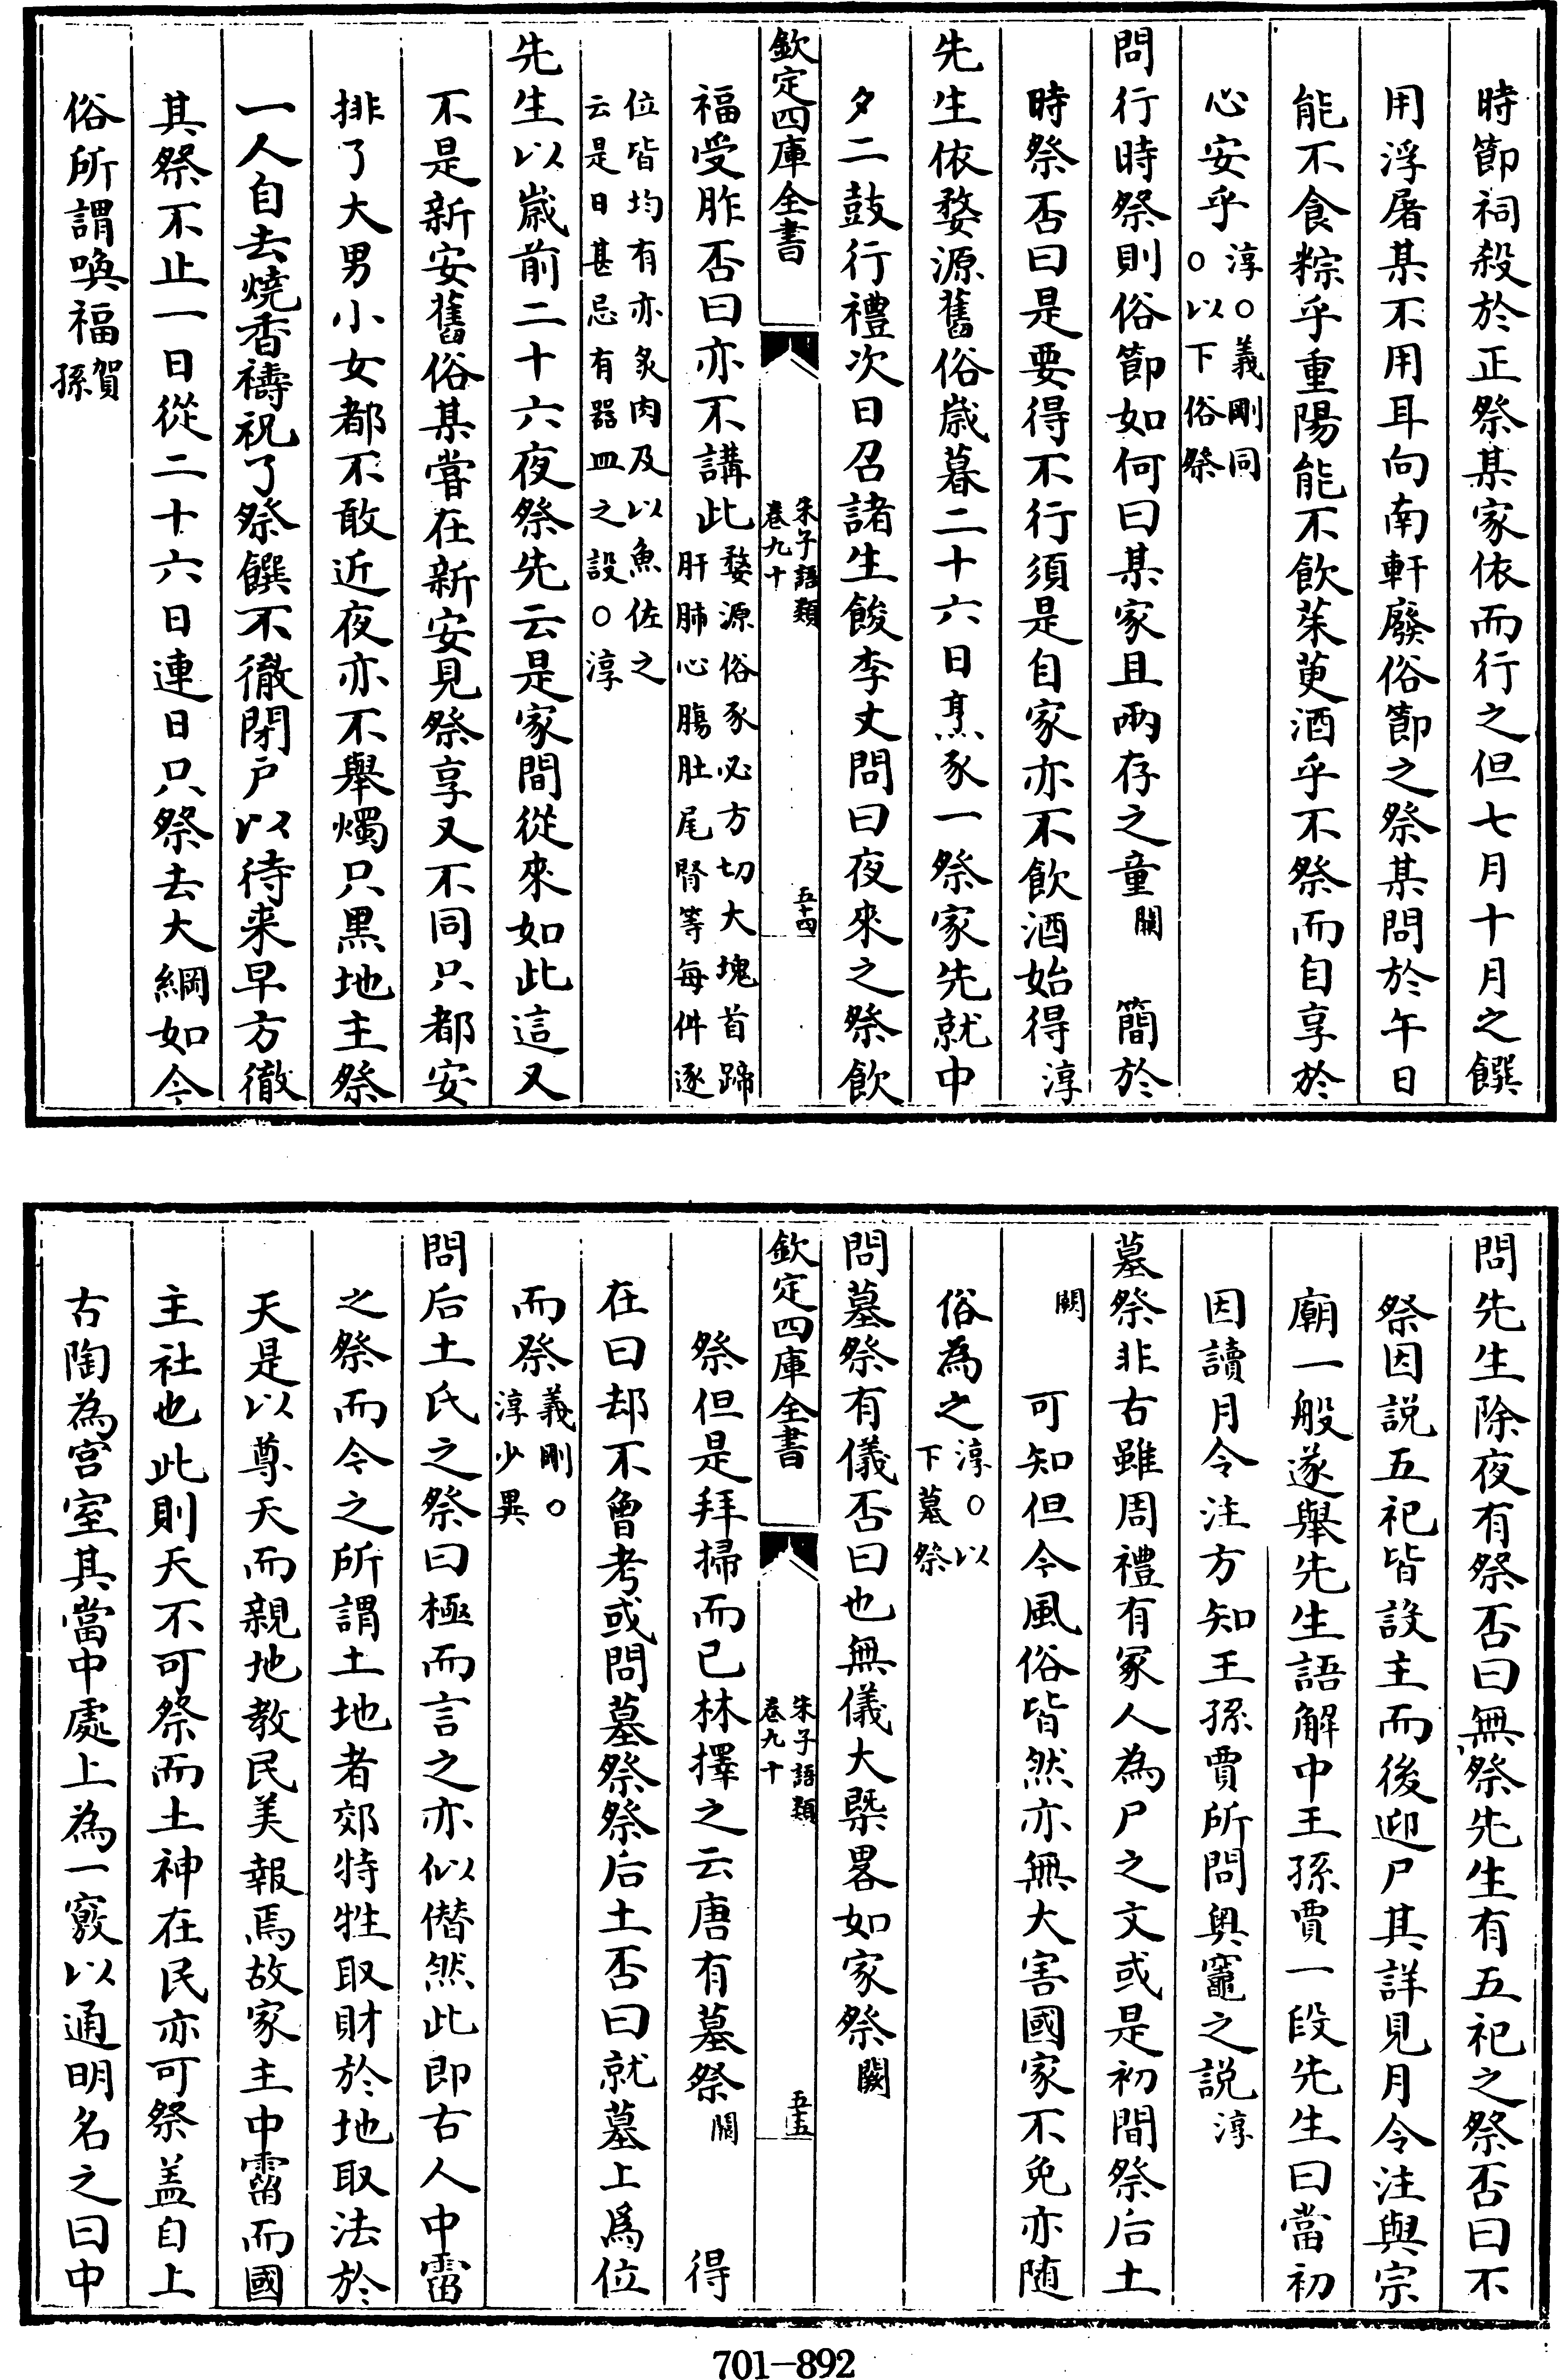 時節祠殺於正祭某家依而行之但七月十月之饌
用浮屠某不用耳向南軒廢俗節之祭某問於午日
能不食粽乎重陽能不飲茱萸酒乎不祭而自享於
心安乎淳○義剛同○以下俗祭
問行時祭則俗節如何曰某家且兩存之童闕 簡於
時祭否曰是要得不行須是自家亦不飲酒始得淳
先生依婺源舊俗嵗暮二十六日烹豕一祭家先就中
夕二鼓行禮次日召諸生餕李丈問曰夜來之祭飲
欽定四庫全書
朱子語類
卷九十
五十四
福受胙否曰亦不講此婺源俗豕必方切大塊首蹄肝肺心腸肚尾腎等每件逐
位皆均有亦炙肉及以魚佐之云是日甚忌有器皿之設○淳
先生以嵗前二十六夜祭先云是家間從來如此這又
不是新安舊俗某嘗在新安見祭享又不同只都安
排了大男小女都不敢近夜亦不舉燭只黒地主祭
一人自去燒香禱祝了祭饌不徹閉户以待来早方徹
其祭不止一日從二十六日連日只祭去大綱如今
俗所謂喚福賀孫
問先生除夜有祭否曰無祭先生有五祀之祭否曰不
祭因説五祀皆設主而後迎尸其詳見月令注與宗
廟一般遂舉先生語解中王孫賈一段先生曰當初
因讀月令注方知王孫賈所問奥竈之説淳
墓祭非古雖周禮有冢人為尸之文或是初間祭后土
闕 可知但今風俗皆然亦無大害國家不免亦随
俗為之淳○以下墓祭
問墓祭有儀否曰也無儀大槩畧如家祭闕
欽定四庫全書
朱子語類
卷九十
五十五
祭但是拜掃而已林擇之云唐有墓祭闕 得
在曰却不曾考或問墓祭祭后土否曰就墓上爲位
而祭義剛○淳少異
問后土氏之祭曰極而言之亦似僣然此即古人中霤
之祭而今之所謂土地者郊特牲取財於地取法於
天是以尊天而親地教民美報焉故家主中霤而國
主社也此則天不可祭而土神在民亦可祭盖自上
古陶為宫室其當中處上為一竅以通明名之曰中
701-892